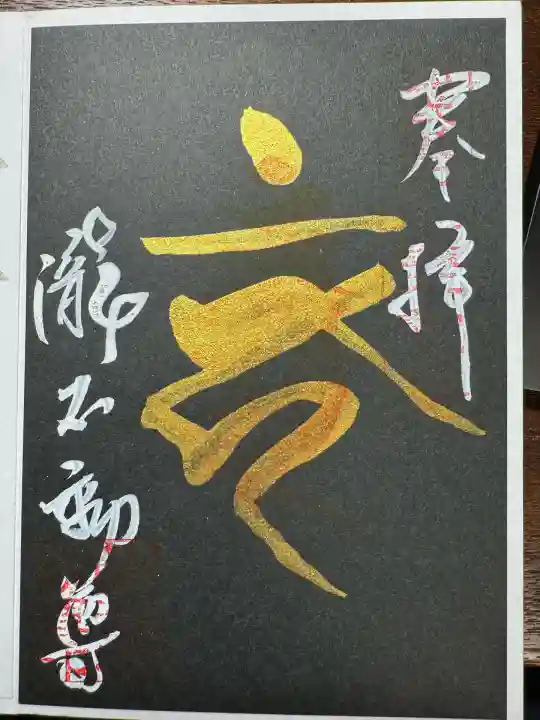 奉拝
𑖮𑖯𑖽
瀧不動尊